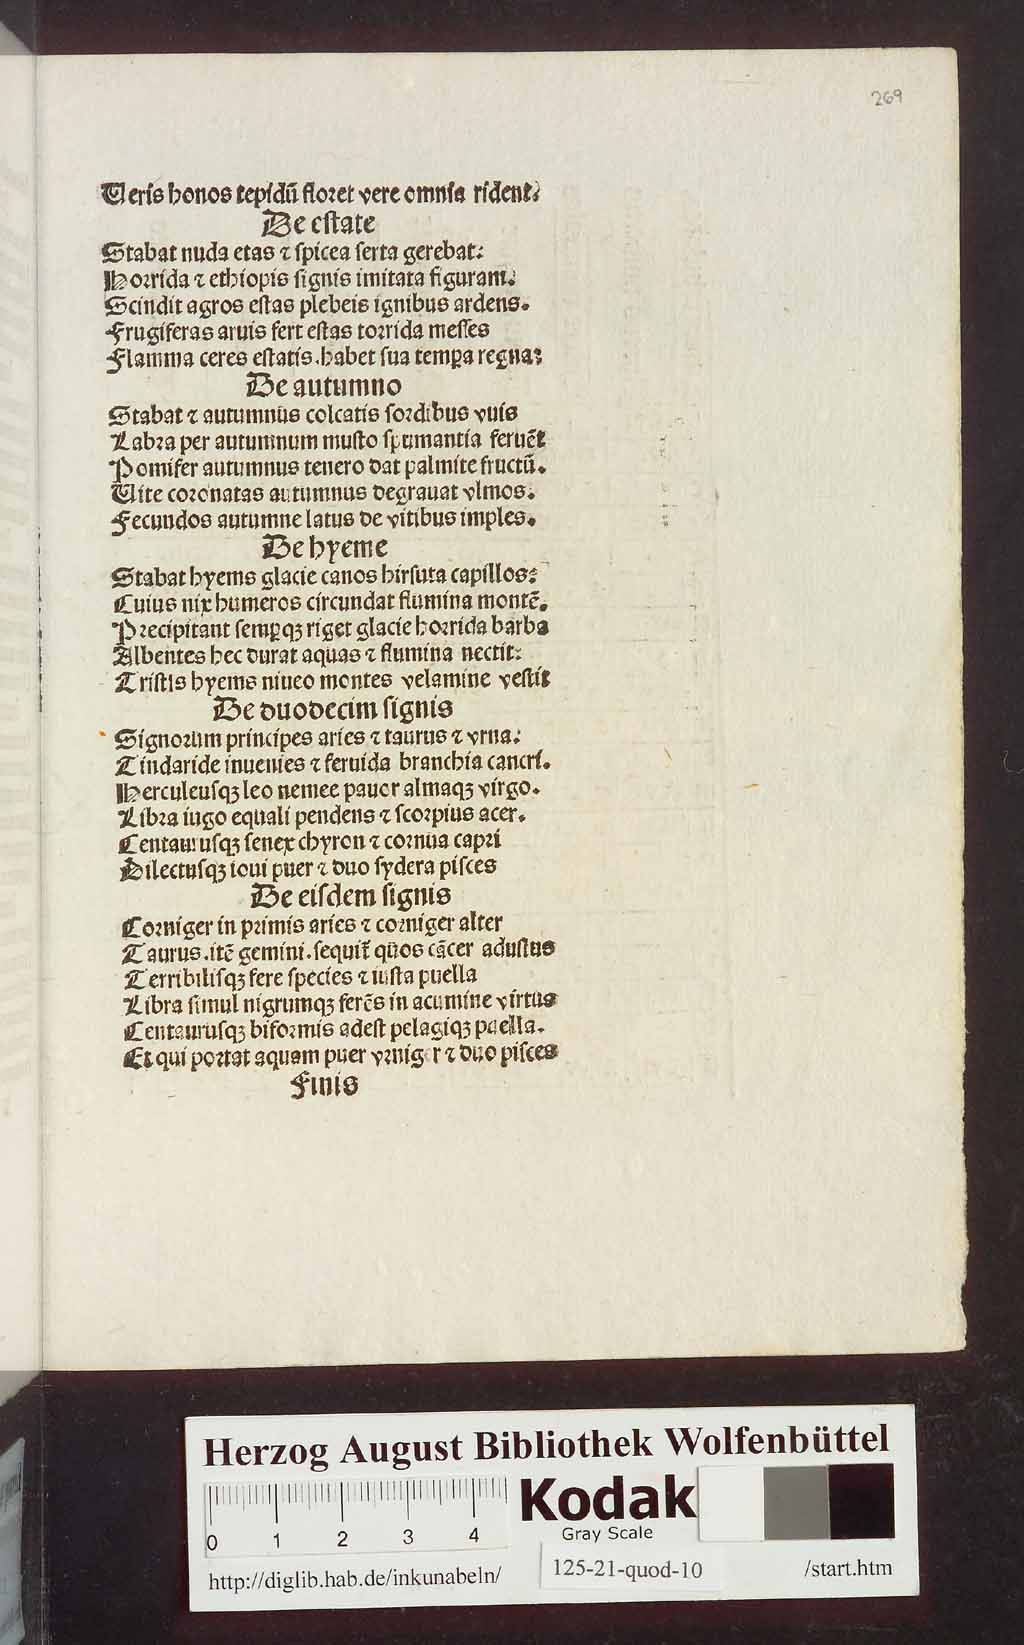 269
Ueris honos tepidū floret vere omnia rident:
De estate
Stabat nuda etas ⁊ spicea serta gerebat:
Horrida ⁊ ethiopis signis imitata figuram:
Scindit agros estas plebeis ignibus ardens.
Frugiferas aruis fert estas torrida messes
Flamma ceres estatis.habet sua temꝑa regna:
De autumno
Stabat ⁊ autumnus colcatis sordibus vuis
Labra per autumnum musto spumantia feruēt
Pomifer autumnus tenero dat palmite fructū.
Uite coronatas autumnus degrauat vlmos.
Fecundos autumne latus de vitibus imples.
De hyeme
Stabat hyems glacie canos hirsuta capillos:
Cuius nix humeros circundat flumina montē.
Precipitant semꝑqꝫ riget glacie horrida barba
Albentes hec durat aquas ⁊ flumina nectit:
Tristis hyems niueo montes velamine vestit
De duodecim signis
Signorum principes aries ⁊ taurus ⁊ vrna:
Tindaride inuenies ⁊ feruida branchia cancri.
Herculeusqꝫ leo nemee pauor almaqꝫ virgo.
Libra iugo equali pendens ⁊ scorpius acer.
Centaurusqꝫ senex chyron ⁊ cornua capri
Dilectusqꝫ ioui puer ⁊ duo sydera pisces
De eisdem signis
Corniger in primis aries ⁊ corniger alter
Taurus.itē gemini.sequit᷑ quos cācer adustus
Terribilisqꝫ fere species ⁊ iusta puella
Libra simul nigrumqꝫ ferēs in acumine virtus
Centaurusqꝫ biformis adest pelagiqꝫ puella.
Et qui portat aquam puer vrniger ⁊ duo pisces
Finis
Herzog August Bibliothek Wolfenbüttel
0 1 2 3 4
Kodak
Gray Scale
http://diglib.hab.de/inkunabeln/
125-21-quod-10
/start.htm